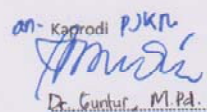 an. Kaprodi PJKR
Dr. Guntur, M.Pd.